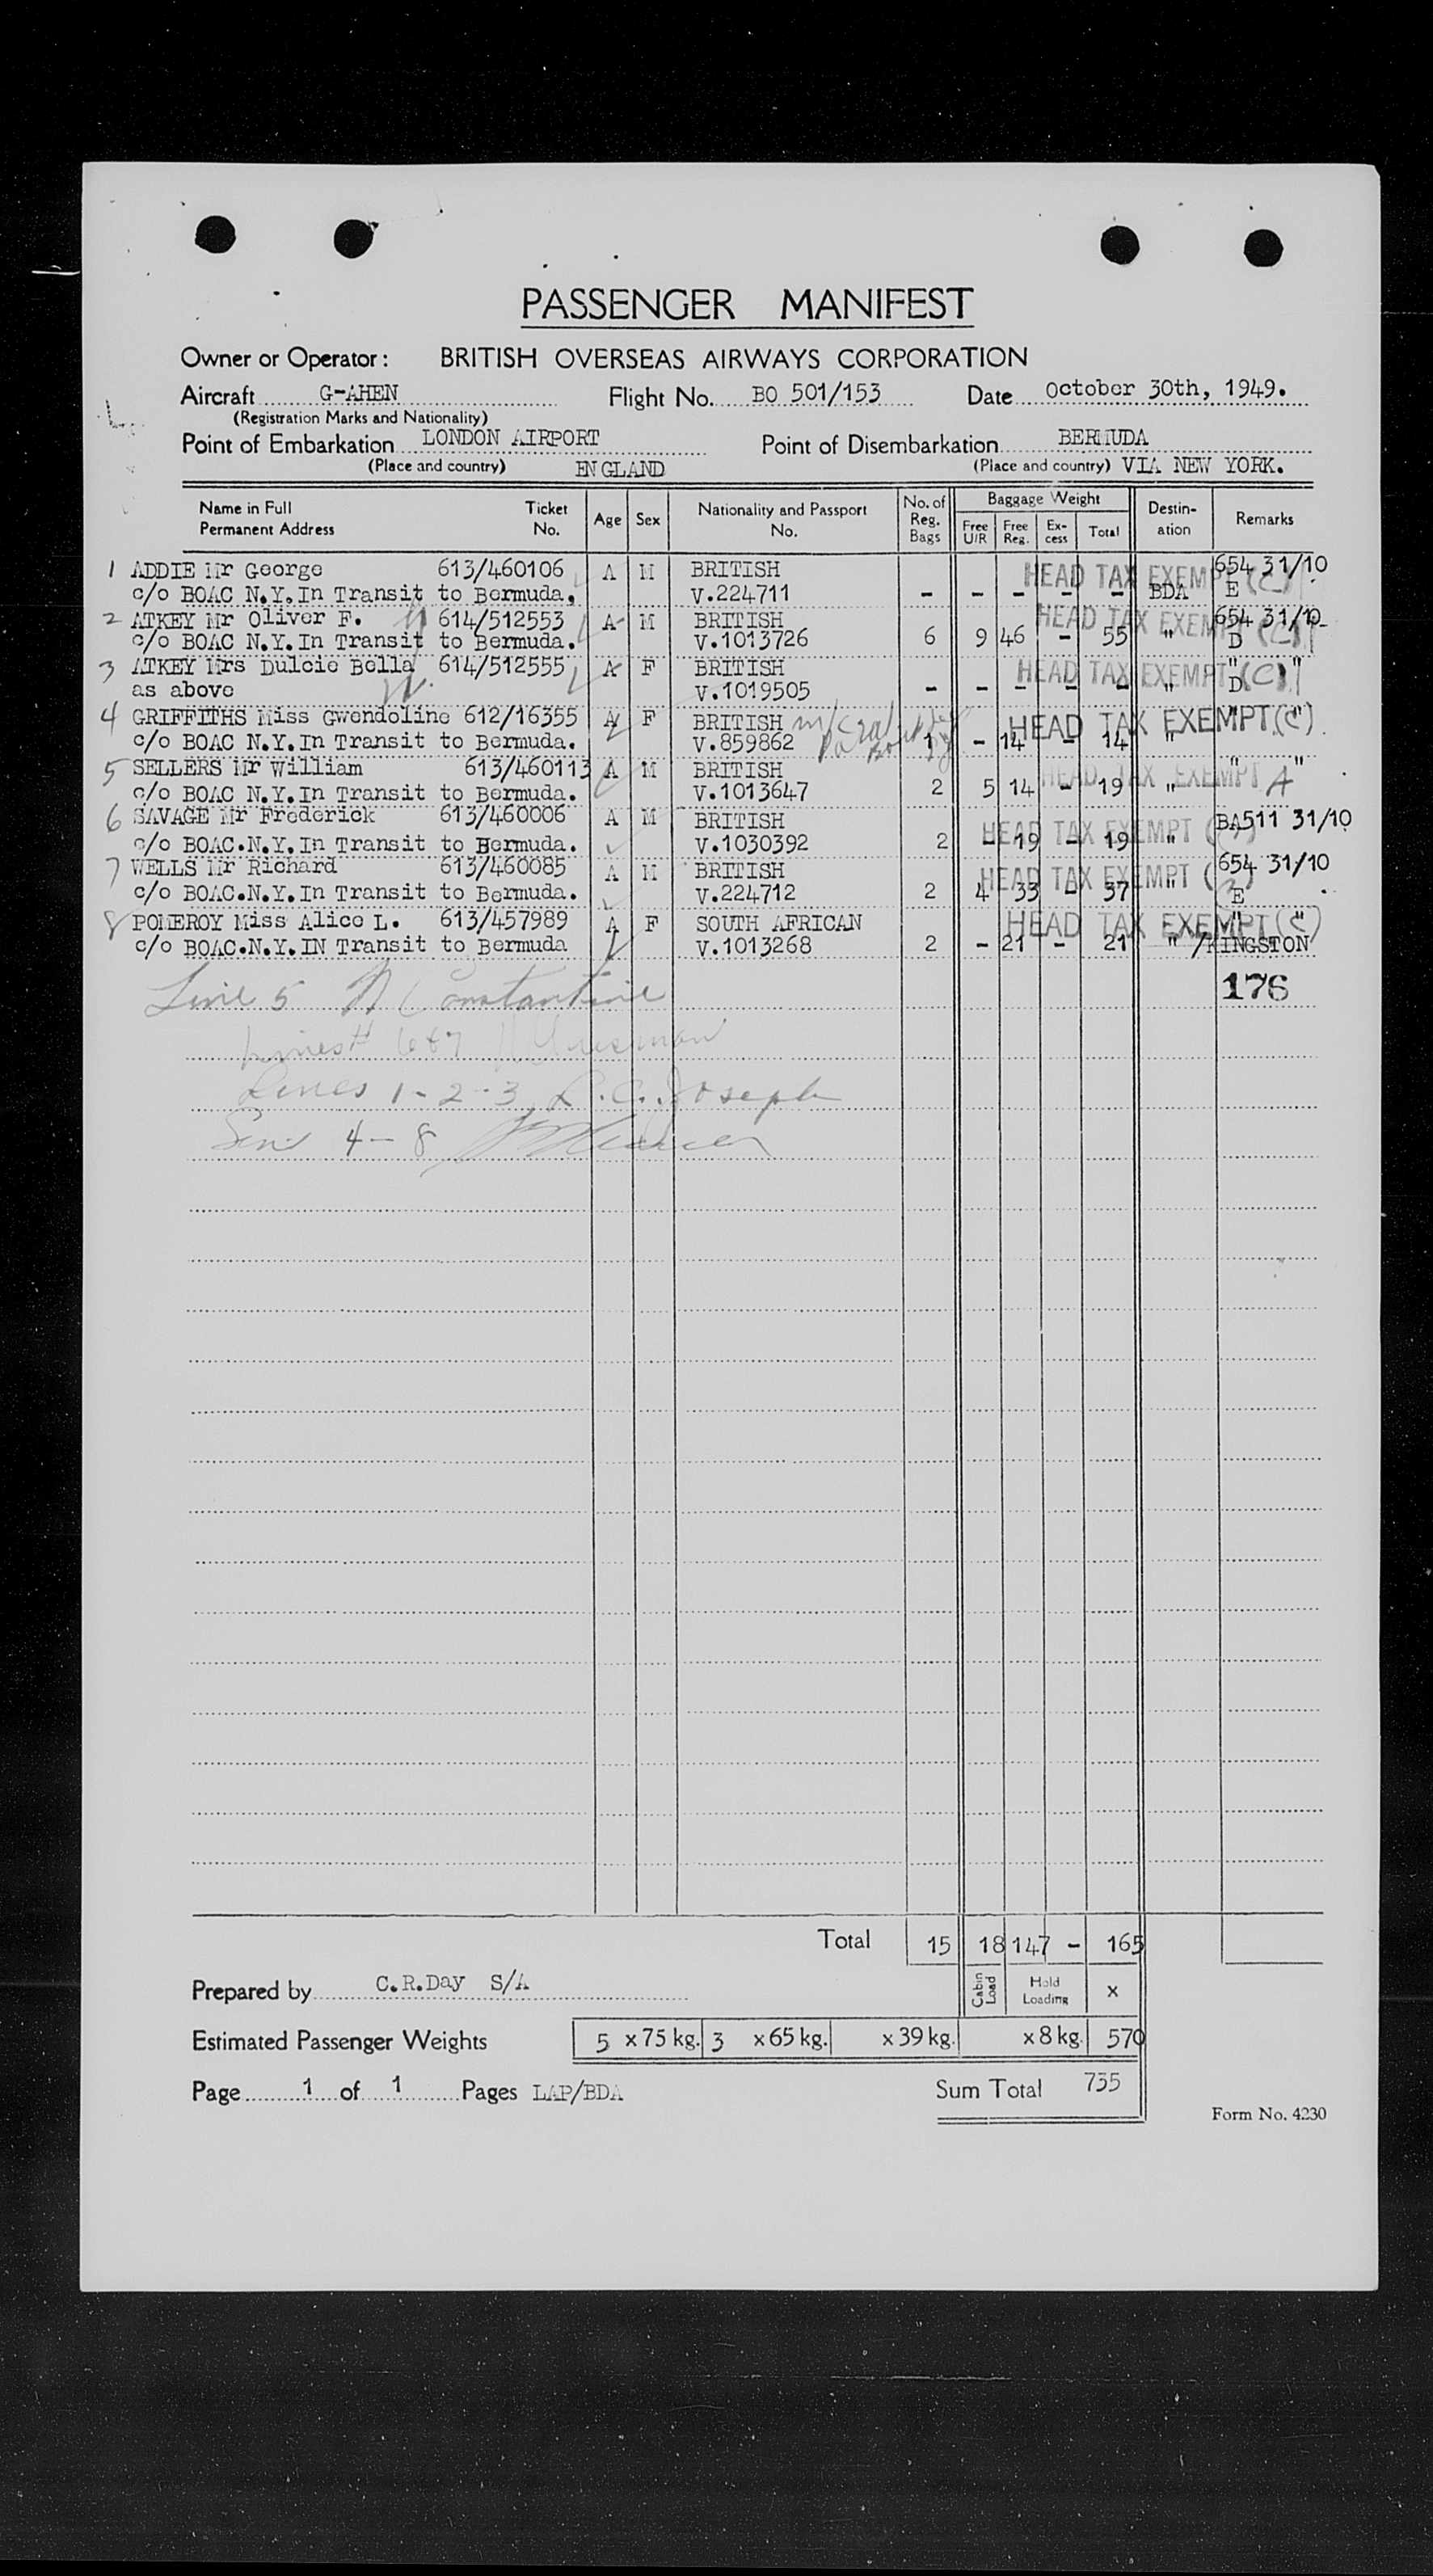 PASSENGER MANIFEST
Owner or Operator: BRITISH OVERSEAS AIRWAYS CORPORATION
Aircraft G-AHEN Flight No. BO 501/153 Date October 30th, 1949.
(Registration Marks and Nationality)
Point of Embarkation LONDON AIRPORT Point of Disembarkation BERMUDA
(Place and country) ENGLAND (Place and country) VIA NEW YORK.
Name in Full Ticket Age Sex Nationality and Passport No. of Baggage Weight Destin- Remarks
Permanent Address No. No. Reg. Bags Free U/R Free Reg. Ex-cess Total ation
1 ADDIE Mr George 613/460106 A M BRITISH HEAD TAX EXEMPT (C) 654 31/10
c/o BOAC N.Y.In Transit to Bermuda. V.224711 - - - - - BDA E
2 ATKEY Mr Oliver F. 614/512553 A M BRITISH HEAD TAX EXEMPT (C) 654 31/10
c/o BOAC N.Y.In Transit to Bermuda. V.1013726 6 9 46 - 55 " D
3 ATKEY Mrs Dulcie Bella 614/512555 A F BRITISH HEAD TAX EXEMPT (C) " "
as above V.1019505 - - - - - " D
4 GRIFFITHS Miss Gwendoline 612/16355 A F BRITISH HEAD TAX EXEMPT (C) " "
c/o BOAC N.Y.In Transit to Bermuda. V.859862 1 - 14 - 14 "
5 SELLERS Mr William 613/460113 A M BRITISH HEAD TAX EXEMPT A " "
c/o BOAC N.Y.In Transit to Bermuda. V.1013647 2 5 14 - 19 "
6 SAVAGE Mr Frederick 613/460006 A M BRITISH HEAD TAX EXEMPT BA511 31/10
c/o BOAC.N.Y.In Transit to Bermuda. V.1030392 2 - 19 - 19 "
7 WELLS Mr Richard 613/460085 A M BRITISH HEAD TAX EXEMPT 654 31/10
c/o BOAC.N.Y.In Transit to Bermuda. V.224712 2 4 33 - 37 " E
8 POMEROY Miss Alice L. 613/457989 A F SOUTH AFRICAN HEAD TAX EXEMPT (C) " "
c/o BOAC.N.Y.IN Transit to Bermuda V.1013268 2 - 21 - 21 " /KINGSTON
Line 5 N Constantine 176
Lines # 6 & 7
Lines 1-2-3 L.C. Joseph
4-8
Total 15 18 147 - 165
Prepared by C.R.Day S/A Cabin Load Hold Loading x
Estimated Passenger Weights 5 x 75 kg. 3 x 65 kg. x 39 kg. x 8 kg. 570
Page 1 of 1 Pages LAP/BDA Sum Total 735
Form No. 4230